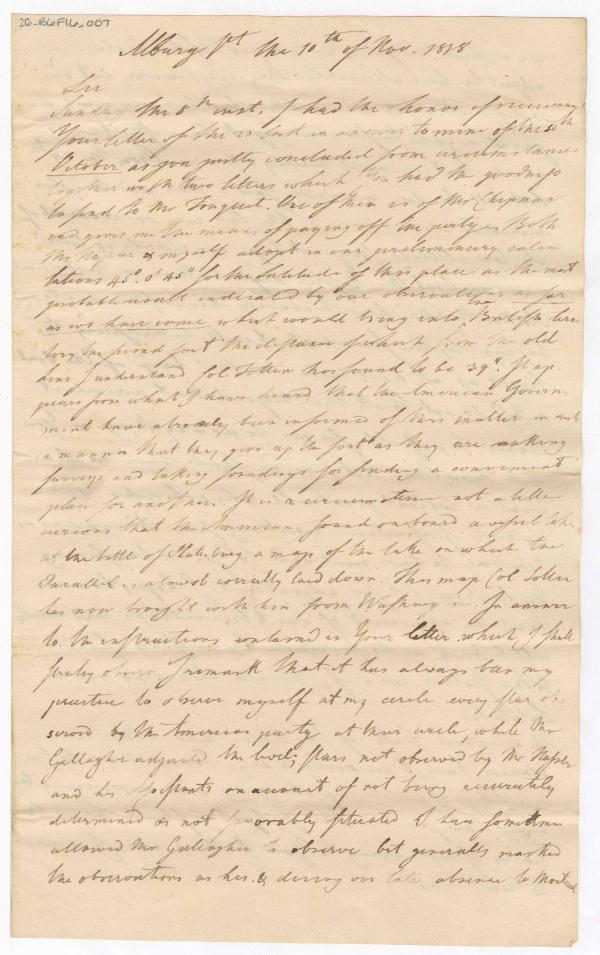 26-B6F16-007
Albury Vt the 10th of Nov. 1818
Sir
Sunday the 8th inst. I had the honor of receiving
Your letter of the 12 inst in answer to mine of the
October as you justly concluded from circumstances
together with two letters which You had the goodness
to send to Mr Truguet. One of them is of Mr Chipman
and gives me the means of paying off the party. Both
Mr Hassler & myself adopt in our preliminary calcu
lations 45°. 0' 45" for the latitude of this place as the most
probable result indicated by our observations as far
as we have come, which would bring into the British terri
tory the proud fort the distance of which from the old
line I understand Col Totten has found to be 39". It ap
pears from what I have heard that the American Govern
ment have already been informed of this matter in such
a manner that they give up the fort as they are making
surveys and taking soundings for finding a convenient
place for another. It is a circumstance not a little
curious that the American found on board a vessel taken
at the battle of Plattsburg a map of the lake on which the
Parallel is almost correctly laid down. This map Col Totten
has now brought with him from Washington. In answer
to the instructions contained in Your letter which I shall
strictly observe I remark that it has always been my
practice to observe myself at my circle every star ob
served by the American party at their circle, while Mr
Gallagher adjusted the level; stars not observed by Mr Hassler
and his assistants on account of not being accurately
determined or not favorably situated I have sometimes
allowed Mr Gallagher to observe but generally marked
the observations as his. & during our late absence to Montreal